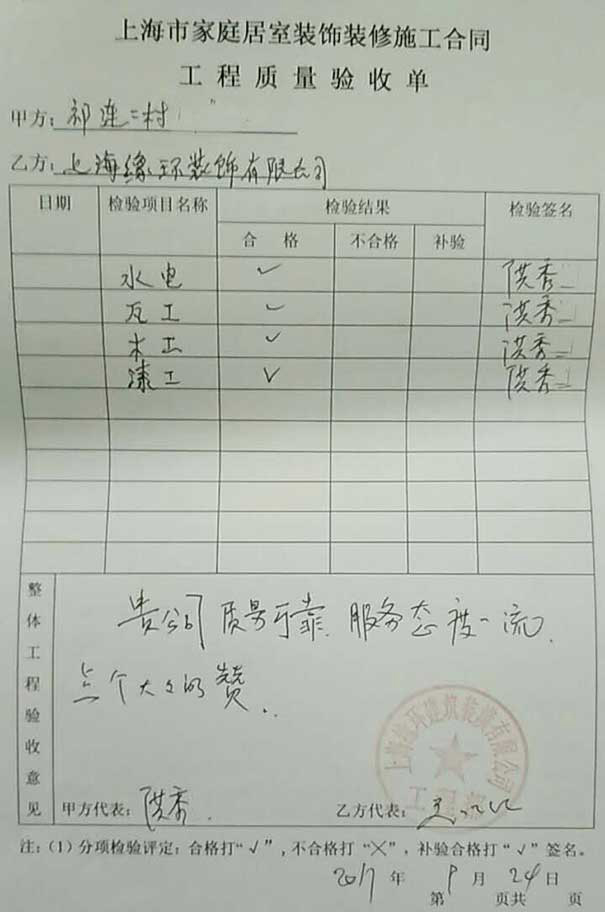 上海市家庭居室装饰装修施工合同
工程质量验收单
甲方：祁连二村
乙方：上海缘环装饰有限公司
日期 检验项目名称 检验结果 检验签名
合格 不合格 补验
水电 ✓ 洪秀
瓦工 ✓ 洪秀
木工 ✓ 洪秀
漆工 ✓ 洪秀
整体工程验收意见
贵公司质量可靠，服务态度一流，
点个大大的赞..
甲方代表：洪秀 乙方代表：
注：（1）分项检验评定：合格打“√”，不合格打“╳”，补验合格打“√”签名。
2017年9月24日
第 页共 页